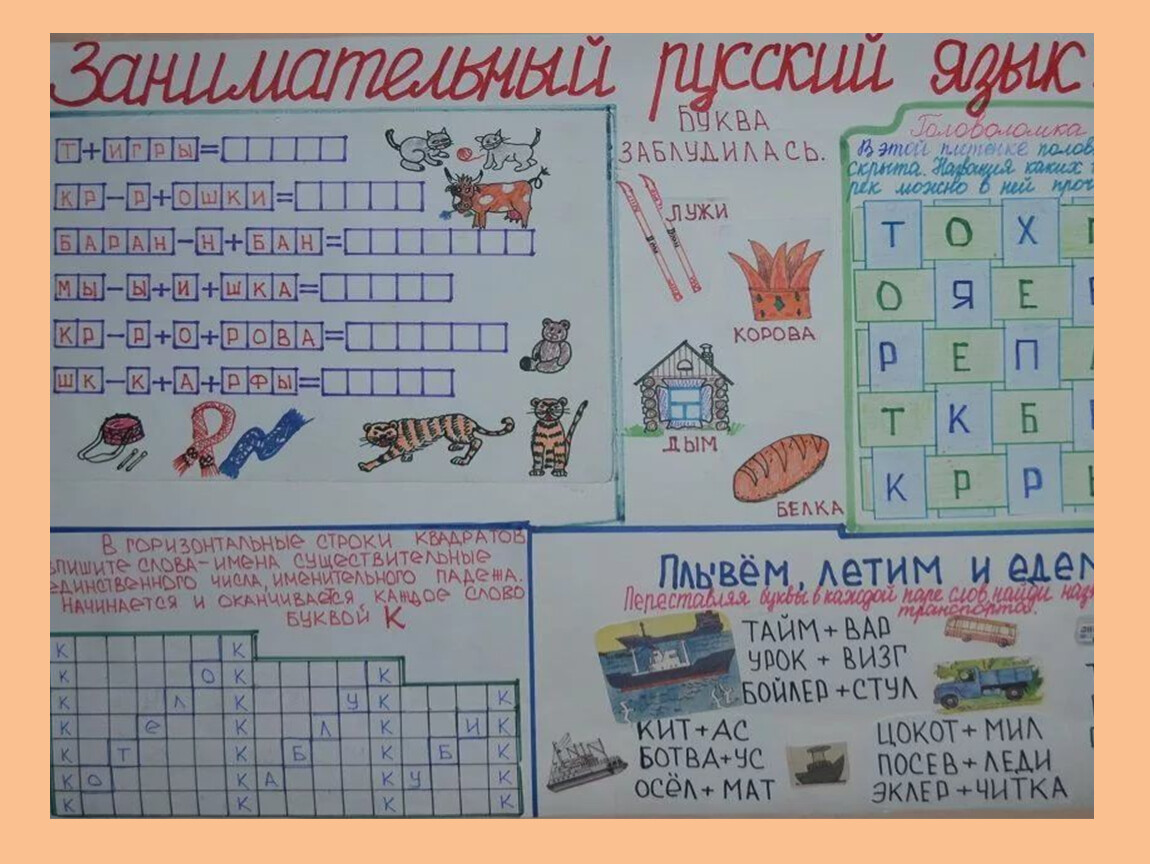 Занимательный русский язык
Т+ИГРЫ=
КР-Р+ОШКИ=
БАРАН-Н+БАН=
МЫ-Ы+И+ШКА=
КР-Р+О+РОВА=
ШК-К+А+РФЫ=
БУКВА
ЗАБЛУДИЛАСЬ.
ЛУЖИ
КОРОВА
ДЫМ
БЕЛКА
Головоломка
В этой плетёнке
скрыта. Названия каких
рек можно в ней
Т О Х
О Я Е
Р Е П
Т К Б
К Р Р
В ГОРИЗОНТАЛЬНЫЕ СТРОКИ КВАДРАТОВ
СЛОВА-ИМЕНА СУЩЕСТВИТЕЛЬНЫЕ
ЧИСЛА, ИМЕНИТЕЛЬНОГО ПАДЕЖА.
НАЧИНАЕТСЯ И ОКАНЧИВАЕТСЯ КАЖДОЕ СЛОВО
БУКВОЙ К
К К
К О К К
К Л К У К К
К е К Л К И К
К Т К Б К Б К
К О К А К У К
К К К К
Плывём, летим и едем
Переставляя буквы в каждой паре слов, найди
транспорта.
ТАЙМ+ВАР
УРОК+ВИЗГ
БОЙЛЕР+СТУЛ
КИТ+АС
БОТВА+УС
ОСЁЛ+МАТ
ЦОКОТ+МИЛ
ПОСЕВ+ЛЕДИ
ЭКЛЕР+ЧИТКА